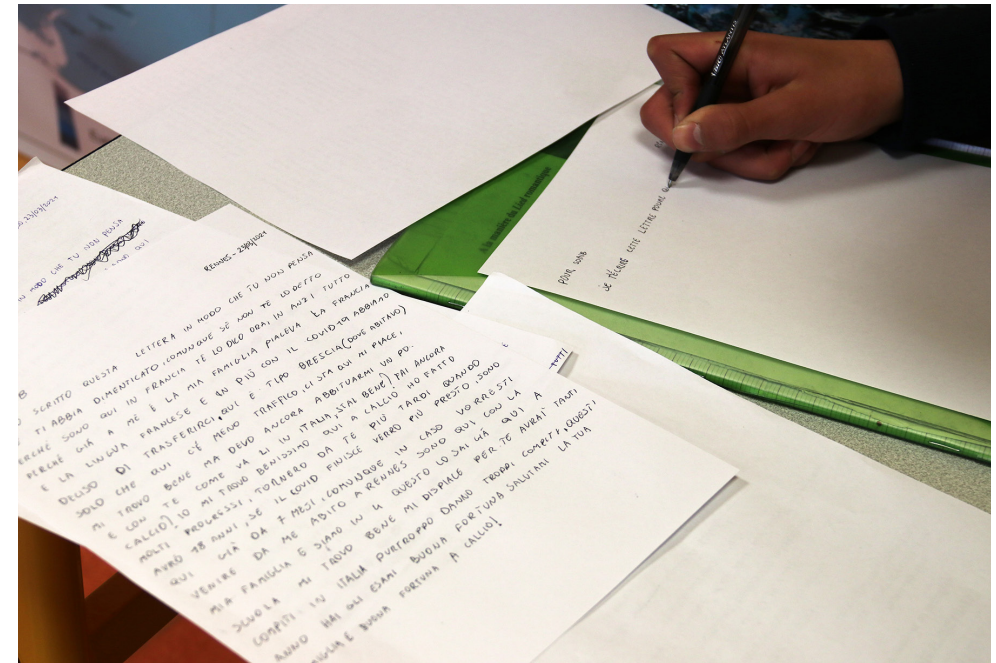 23/03/2021
MODO CHE TU NON PENSA
QUI
RENNES - 23/03/2021
SCRITTO QUESTA LETTERA IN MODO CHE TU NON PENSA
TI ABBIA DIMENTICATO, COMUNQUE SE NON TE LO DETTO
ERCHÉ SONO QUI IN FRANCIA TE LO DICO ORA, IN ANZI TUTTO
PERCHÉ GIÀ A ME E LA MIA FAMIGLIA PIACEVA LA FRANCIA
E LA LINGUA FRANCESE E IN PIÙ CON IL COVID 19 ABBIAMO
DECISO DI TRASFERIRCI, QUI È TIPO BRESCIA (DOVE ABITAVO)
SOLO CHE QUI C'È MENO TRAFFICO, CI STA QUI MI PIACE,
MI TROVO BENE MA DEVO ANCORA ABITUARMI UN PO.
E CON TE COME VA LI IN ITALIA, STAI BENE? FAI ANCORA
CALCIO? IO MI TROVO BENISSIMO QUI A CALCIO HO FATTO
MOLTI PROGRESSI, TORNERO DA TE PIÙ TARDI QUANDO
AVRÒ 18 ANNI, SE IL COVID FINISCE VERRO PIÙ PRESTO, SONO
QUI GIÀ DA 7 MESI, COMUNQUE IN CASO VORRESTI
VENIRE DA ME ABITO A RENNES SONO QUI CON LA
MIA FAMIGLIA E SIAMO IN 4 QUESTO LO SAI GIÀ QUI A
SCUOLA MI TROVO BENE MI DISPIACE PER TE AVRAI TANTI
COMPITI IN ITALIA PURTROPPO DANNO TROPPI COMPITI, QUEST'
ANNO HAI GLI ESAMI BUONA FORTUNA SALUTAMI LA TUA
MIGLIA E BUONA FORTUNA A CALCIO!
TUTTI
À la manière du Lied romantique
POUR
JE T'ÉCRIS CETTE LETTRE POUR